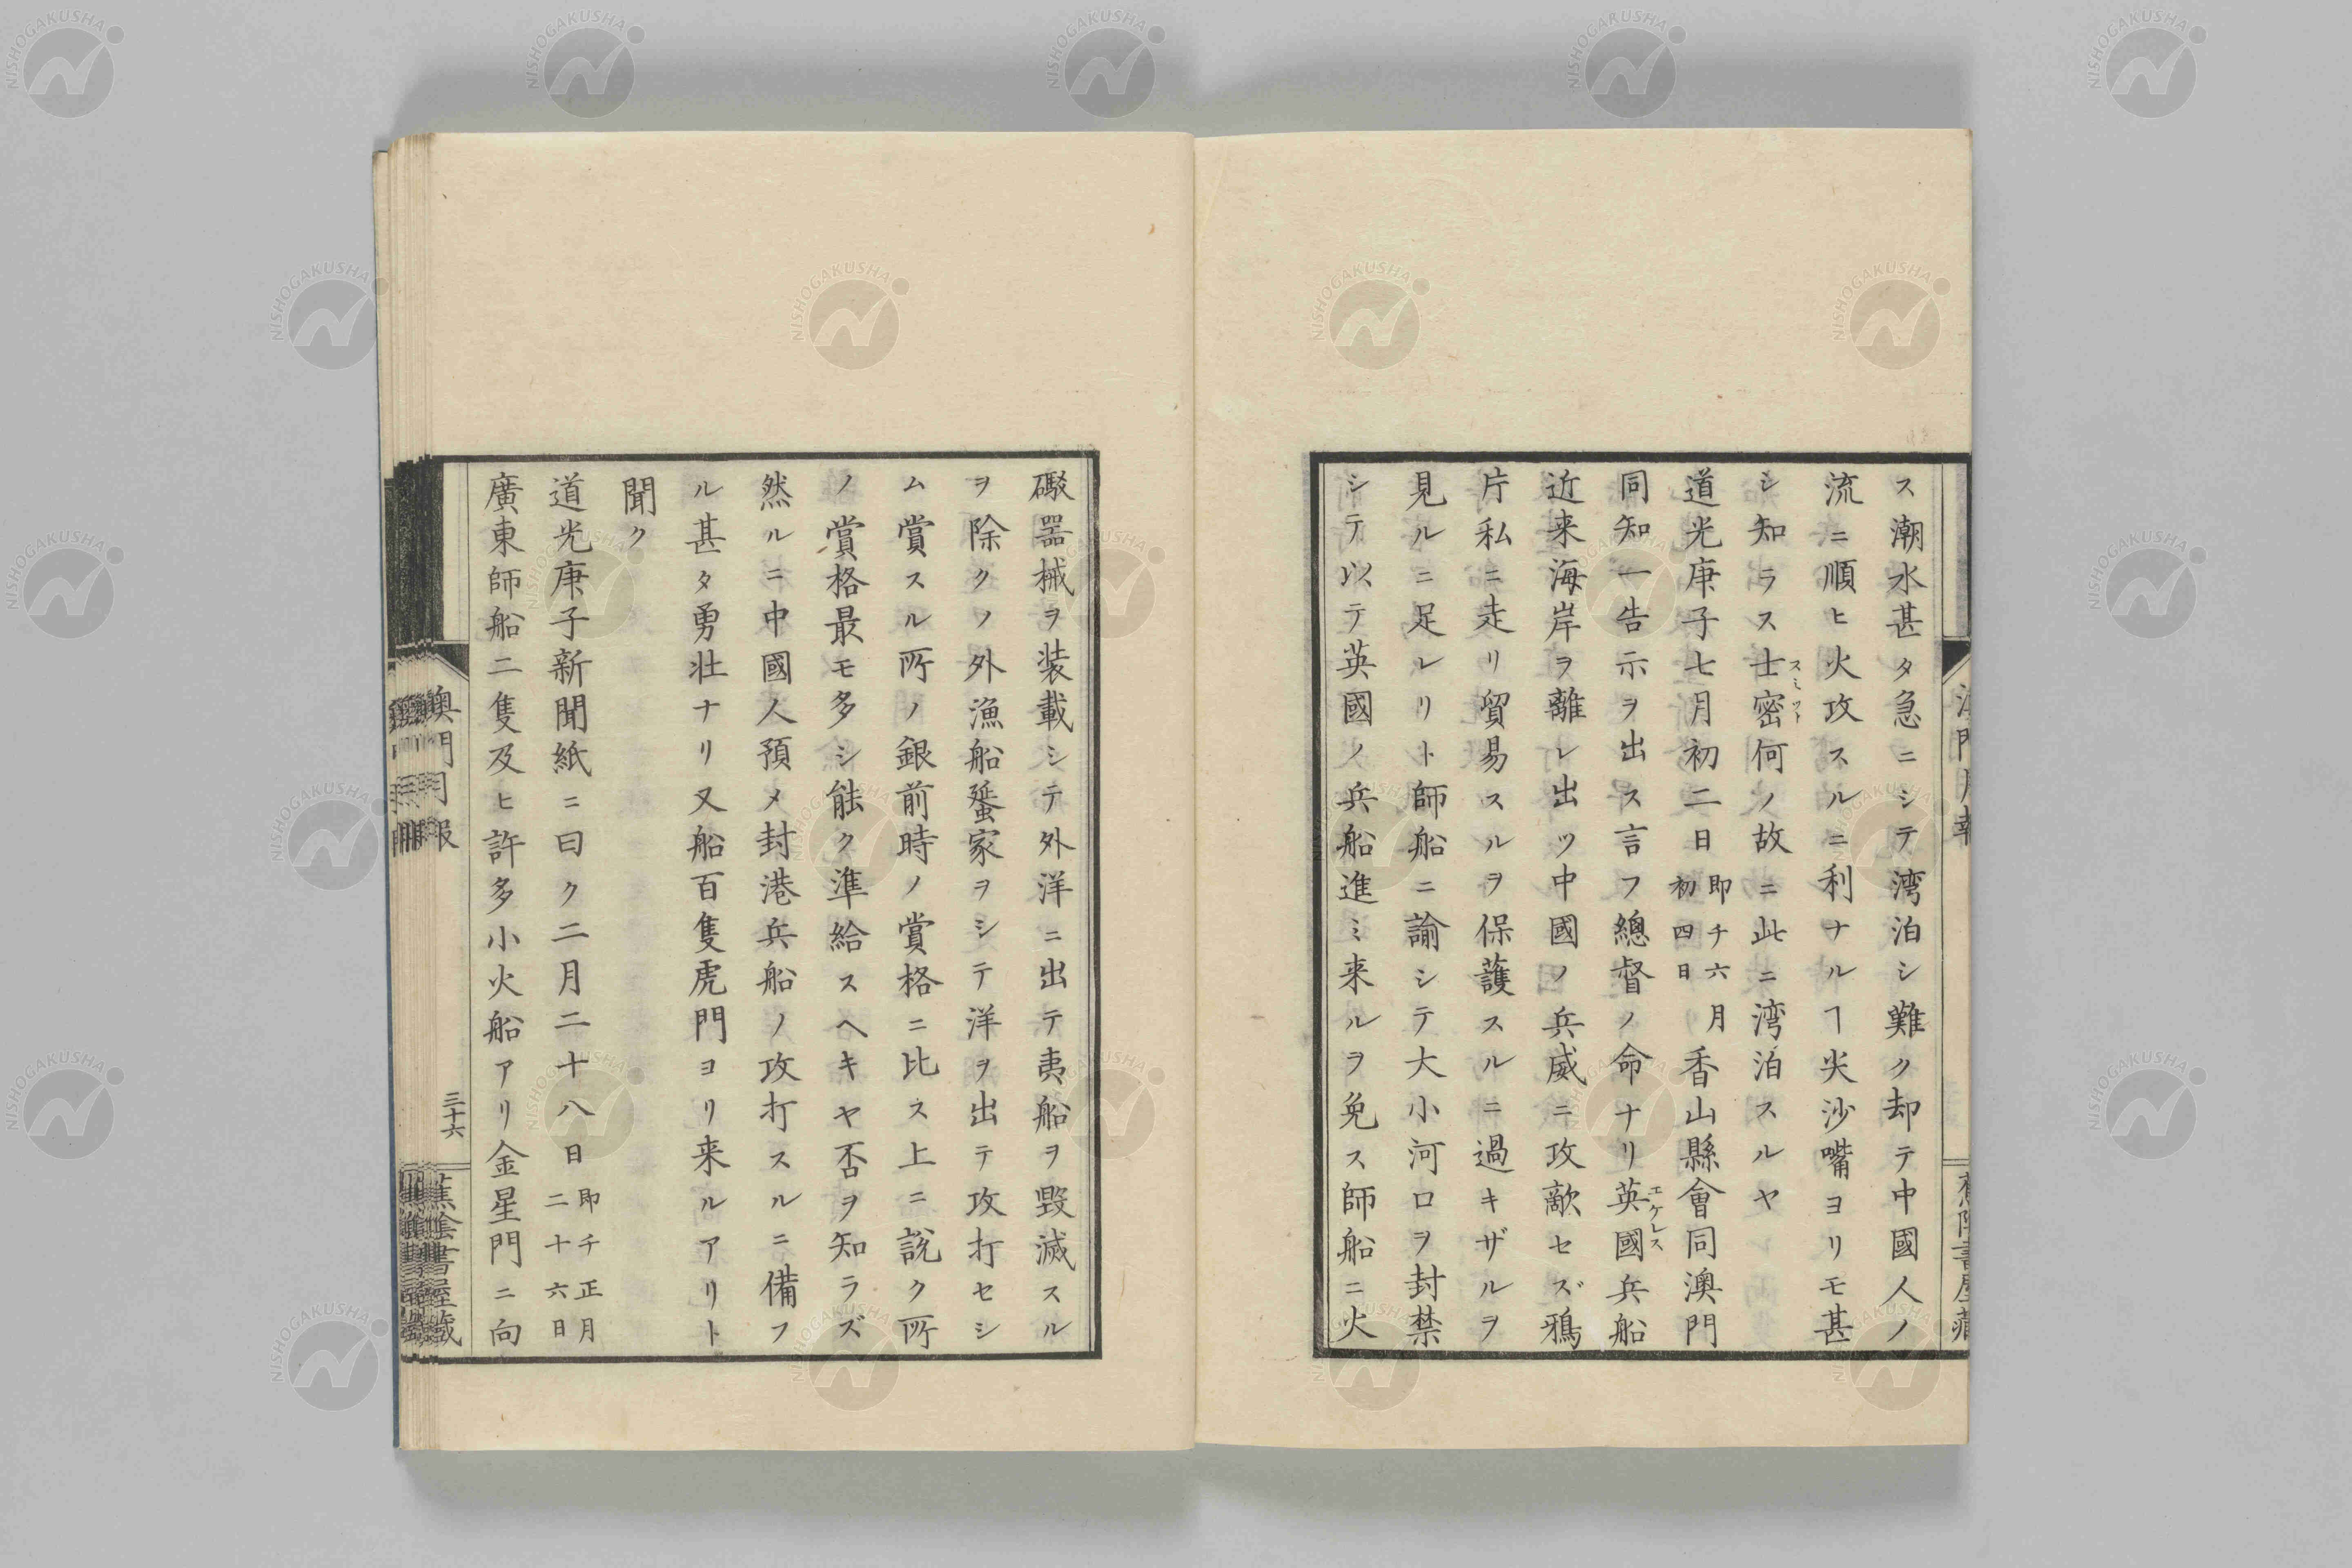 ス潮水甚タ急ニシテ湾泊シ難ク却テ中國人ノ
流ニ順ヒ火攻スルニ利ナルヿ尖沙嘴ヨリモ甚
シ知ラス士密何ノ故ニ此ニ湾泊スルヤ
スミツト
道光庚子七月初二日即チ六月初四日香山縣會同澳門
同知一告示ヲ出ス言フ總督ノ命ナリ英國兵船
エケレス
近来海岸ヲ離レ出ツ中國ノ兵威ニ攻敵セズ鴉
片私ニ走リ貿易スルヲ保護スルニ過キザルヲ
見ルニ足レリト師船ニ諭シテ大小河口ヲ封禁
シテ以テ英國ノ兵船進ミ来ルヲ免ス師船ニ火
礮器械ヲ装載シテ外洋ニ出テ夷船ヲ毀滅スル
ヲ除クノ外漁船蜑家ヲシテ洋ヲ出テ攻打セシ
ム賞スル所ノ銀前時ノ賞格ニ比ス上ニ說ク所
ノ賞格最モ多シ能ク準給スヘキヤ否ヲ知ラズ
然ルニ中國人預メ封港兵船ノ攻打スルニ備フ
ル甚タ勇壮ナリ又船百隻虎門ヨリ来ルアリト
聞ク
道光庚子新聞紙ニ曰ク二月二十八日即チ正月二十六日
廣東師船二隻及ヒ許多小火船アリ金星門ニ向
澳門月報
三十六
蕉陰書屋蔵
NISHOGAKUSHA